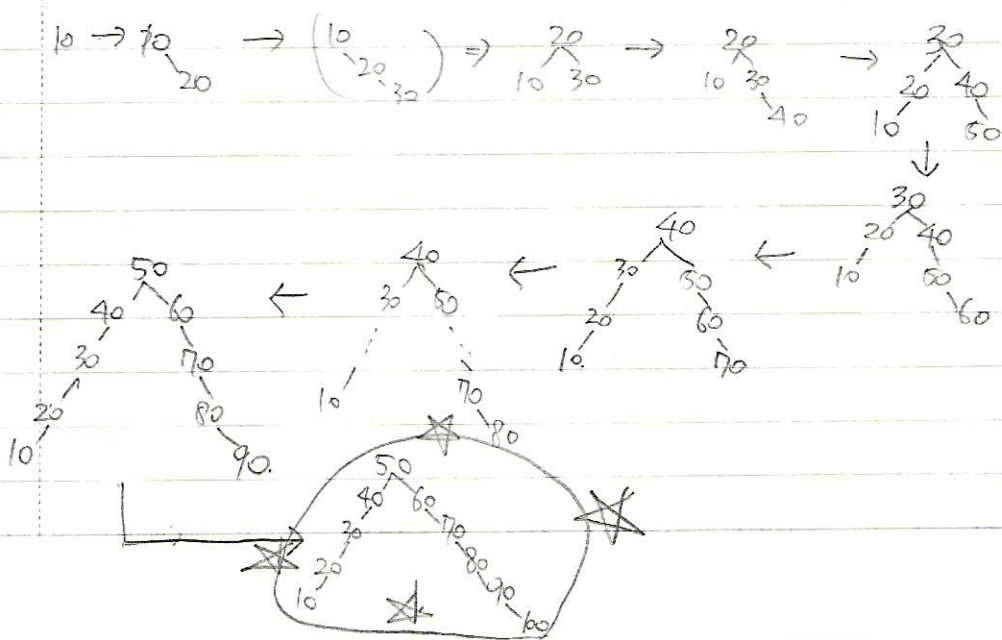 10 → 10
20
→ (10
20
30)
⇒ 20
10 30
→ 20
10 30
40
→ 30
20 40
10 50
↓
30
20 40
10 50
60
← 40
30 50
20 60
10 70
← 40
30 50
10 70
80
← 50
40 60
30 70
20 80
10 90
50
40 60
30 70
20 80
10 90
100